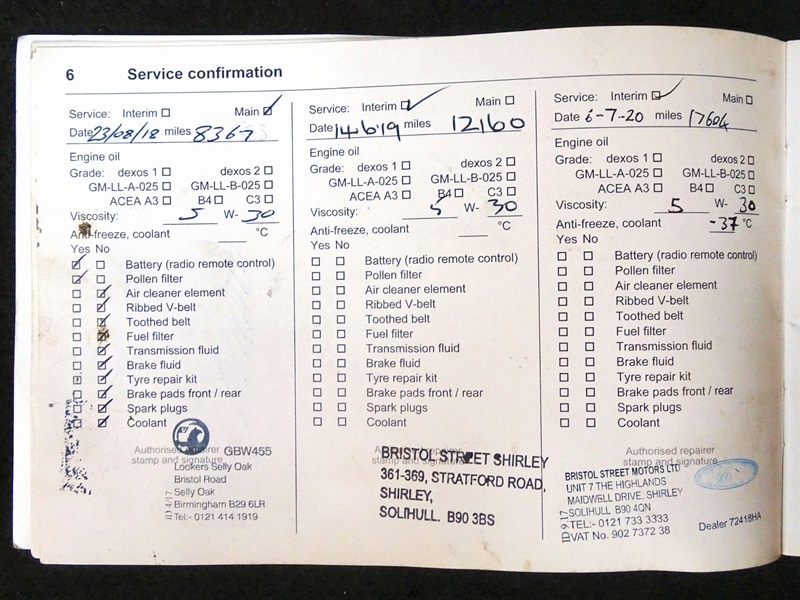 6 Service confirmation
Service: Interim Main
Date 23/08/18 miles 8367
Engine oil
Grade: dexos 1 dexos 2
GM-LL-A-025 GM-LL-B-025
ACEA A3 B4 C3
Viscosity: 5 W- 30
Anti-freeze, coolant °C
Yes No
Battery (radio remote control)
Pollen filter
Air cleaner element
Ribbed V-belt
Toothed belt
Fuel filter
Transmission fluid
Brake fluid
Tyre repair kit
Brake pads front / rear
Spark plugs
Coolant
Authorised repairer
stamp and signature
GBW455
Lookers Selly Oak
Bristol Road
Selly Oak
Birmingham B29 6LR
Tel:- 0121 414 1919
Service: Interim Main
Date 14-6-19 miles 12160
Engine oil
Grade: dexos 1 dexos 2
GM-LL-A-025 GM-LL-B-025
ACEA A3 B4 C3
Viscosity: 5 W- 30
Anti-freeze, coolant °C
Yes No
Battery (radio remote control)
Pollen filter
Air cleaner element
Ribbed V-belt
Toothed belt
Fuel filter
Transmission fluid
Brake fluid
Tyre repair kit
Brake pads front / rear
Spark plugs
Coolant
Authorised repairer
stamp and signature
BRISTOL STREET SHIRLEY
361-369, STRATFORD ROAD,
SHIRLEY,
SOLIHULL. B90 3BS
Service: Interim Main
Date 6-7-20 miles 17604
Engine oil
Grade: dexos 1 dexos 2
GM-LL-A-025 GM-LL-B-025
ACEA A3 B4 C3
Viscosity: 5 W- 30
Anti-freeze, coolant -37 °C
Yes No
Battery (radio remote control)
Pollen filter
Air cleaner element
Ribbed V-belt
Toothed belt
Fuel filter
Transmission fluid
Brake fluid
Tyre repair kit
Brake pads front / rear
Spark plugs
Coolant
Authorised repairer
stamp and signature
BRISTOL STREET MOTORS LTD
UNIT 7 THE HIGHLANDS
MAIDWELL DRIVE, SHIRLEY
SOLIHULL B90 4QN
TEL:- 0121 733 3333
VAT No. 902 7372 38
Dealer 72418HA